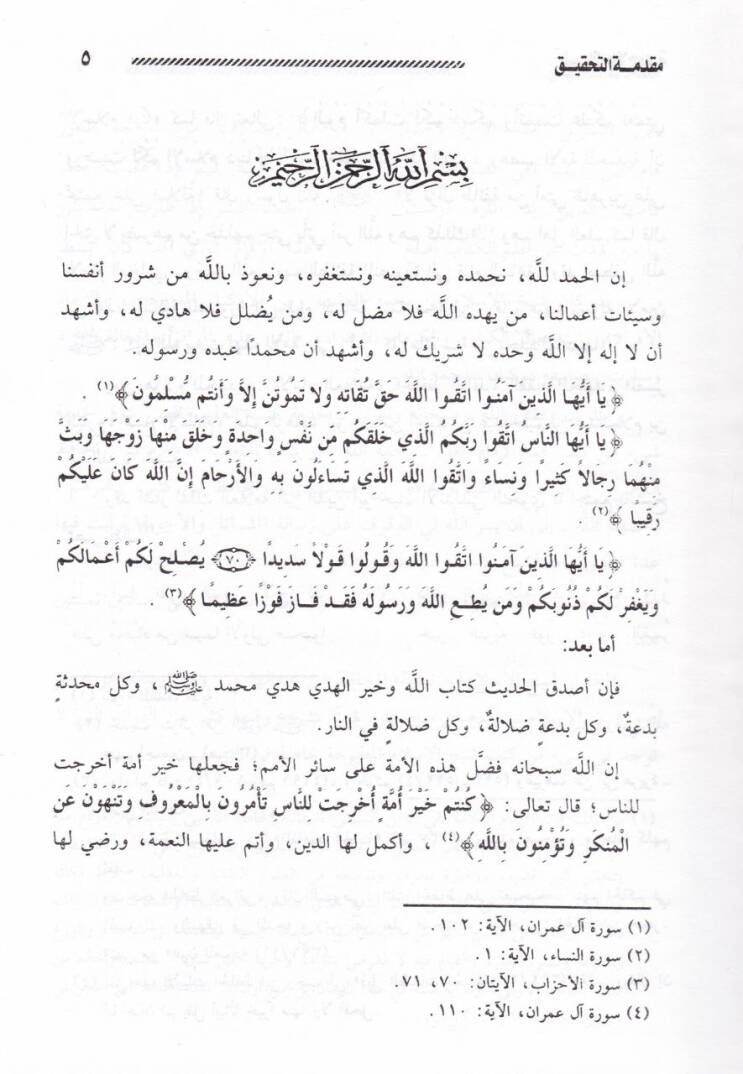 مقدمة التحقيق ٥
بسم الله الرحمن الرحيم
إن الحمد لله، نحمده ونستعينه ونستغفره، ونعوذ بالله من شرور أنفسنا
وسيئات أعمالنا، من يهده الله فلا مضل له، ومن يُضلل فلا هادي له، وأشهد
أن لا إله إلا الله وحده لا شريك له، وأشهد أن محمدًا عبده ورسوله.
﴿يا أيُّها الَّذين آمنُوا اتَّقُوا اللَّه حقَّ تُقاته ولا تمُوتُنَّ إلاَّ وأنتُم مُّسْلمُون﴾(١) .
﴿يا أيُّها النَّاس اتَّقُوا ربَّكُم الَّذي خَلَقَكُم مّن نَّفْسٍ واحدةٍ وخلق منْها زوجها وبثَّ
منْهُما رجالاً كثيرًا ونساءً واتَّقُوا اللَّه الَّذي تساءلُون به والأرْحام إنَّ اللَّه كان عَلَيْكُمْ
رقيبًا﴾(٢)
﴿يا أيُّها الَّذين آمنُوا اتَّقُوا اللَّه وقُولُوا قوْلاً سديدًا ﴿٧٠﴾ يُصْلحْ لَكُمْ أعْمالَكُمْ
ويَغْفرْ لَكُمْ ذُنُوبكُمْ ومن يُطع اللَّه ورسُولهُ فقدْ فاز فوْزًا عظيمًا﴾(٣) .
أما بعد:
فإن أصدق الحديث كتاب الله وخير الهدي هدي محمد ﷺ، وكل محدثةٍ
بدعةٌ، وكل بدعةٍ ضلالةٌ، وكل ضلالة في النار.
إن الله سبحانه فضَّل هذه الأمة على سائر الأمم؛ فجعلها خير أمة أخرجت
للناس؛ قال تعالى: ﴿كُنتُمْ خَيْرَ أُمَّةٍ أُخْرِجتْ للنَّاسِ تأْمُرُون بِالْمعْرُوف وتنْهوْن عن
الْمُنكَرِ وتُؤْمنُون باللَّه﴾(٤) ، وأكمل لها الدين، وأتم عليها النعمة، ورضي لها
(١) سورة آل عمران، الآية: ١٠٢.
(٢) سورة النساء، الآية: ١.
(٣) سورة الأحزاب، الآيتان: ٧٠، ٧١.
(٤) سورة آل عمران، الآية: ١١٠.